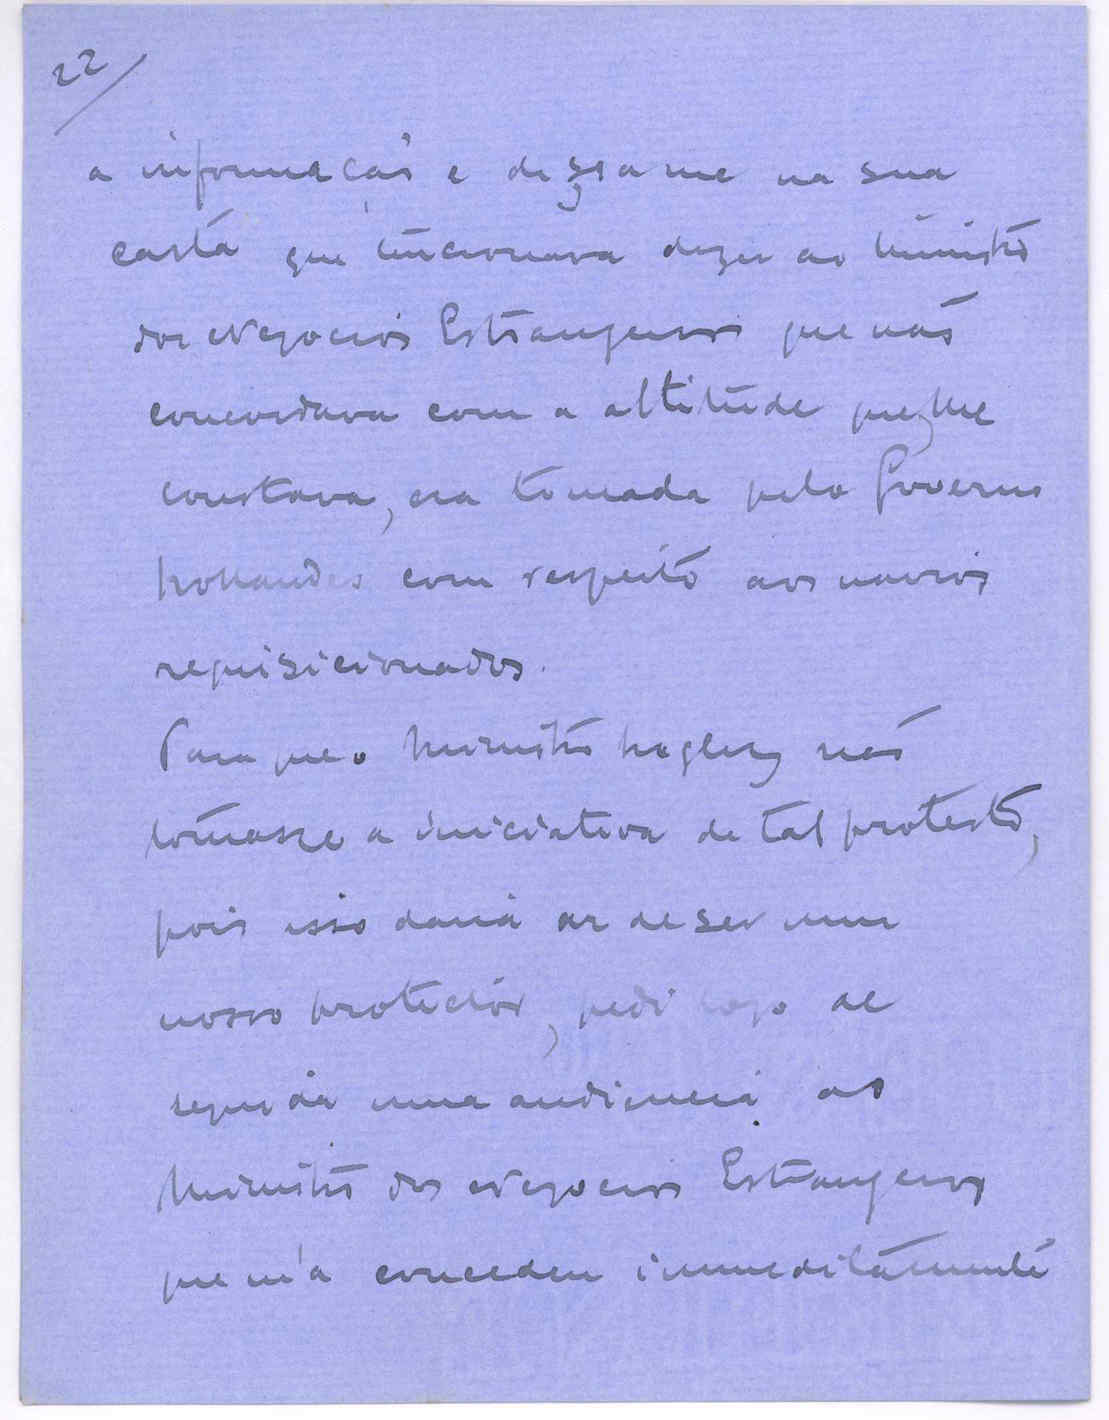 22/
a informação e dizia me na sua
carta que tencionava dizer ao Ministro
dos Negocios Estrangeiros que não
concordava com a attitude que, lhe
constava, era tomada pelo Governo
hollandes com respeito aos navios
requisicionados.
Para que o Ministro Inglez não
tomasse a iniciativa de tal protesto,
pois isso daria ar de ser um
nosso protector, pedi logo de
seguida uma audiencia ao
Ministro dos Negocios Estrangeiros
que m'a concedeu immeditamente